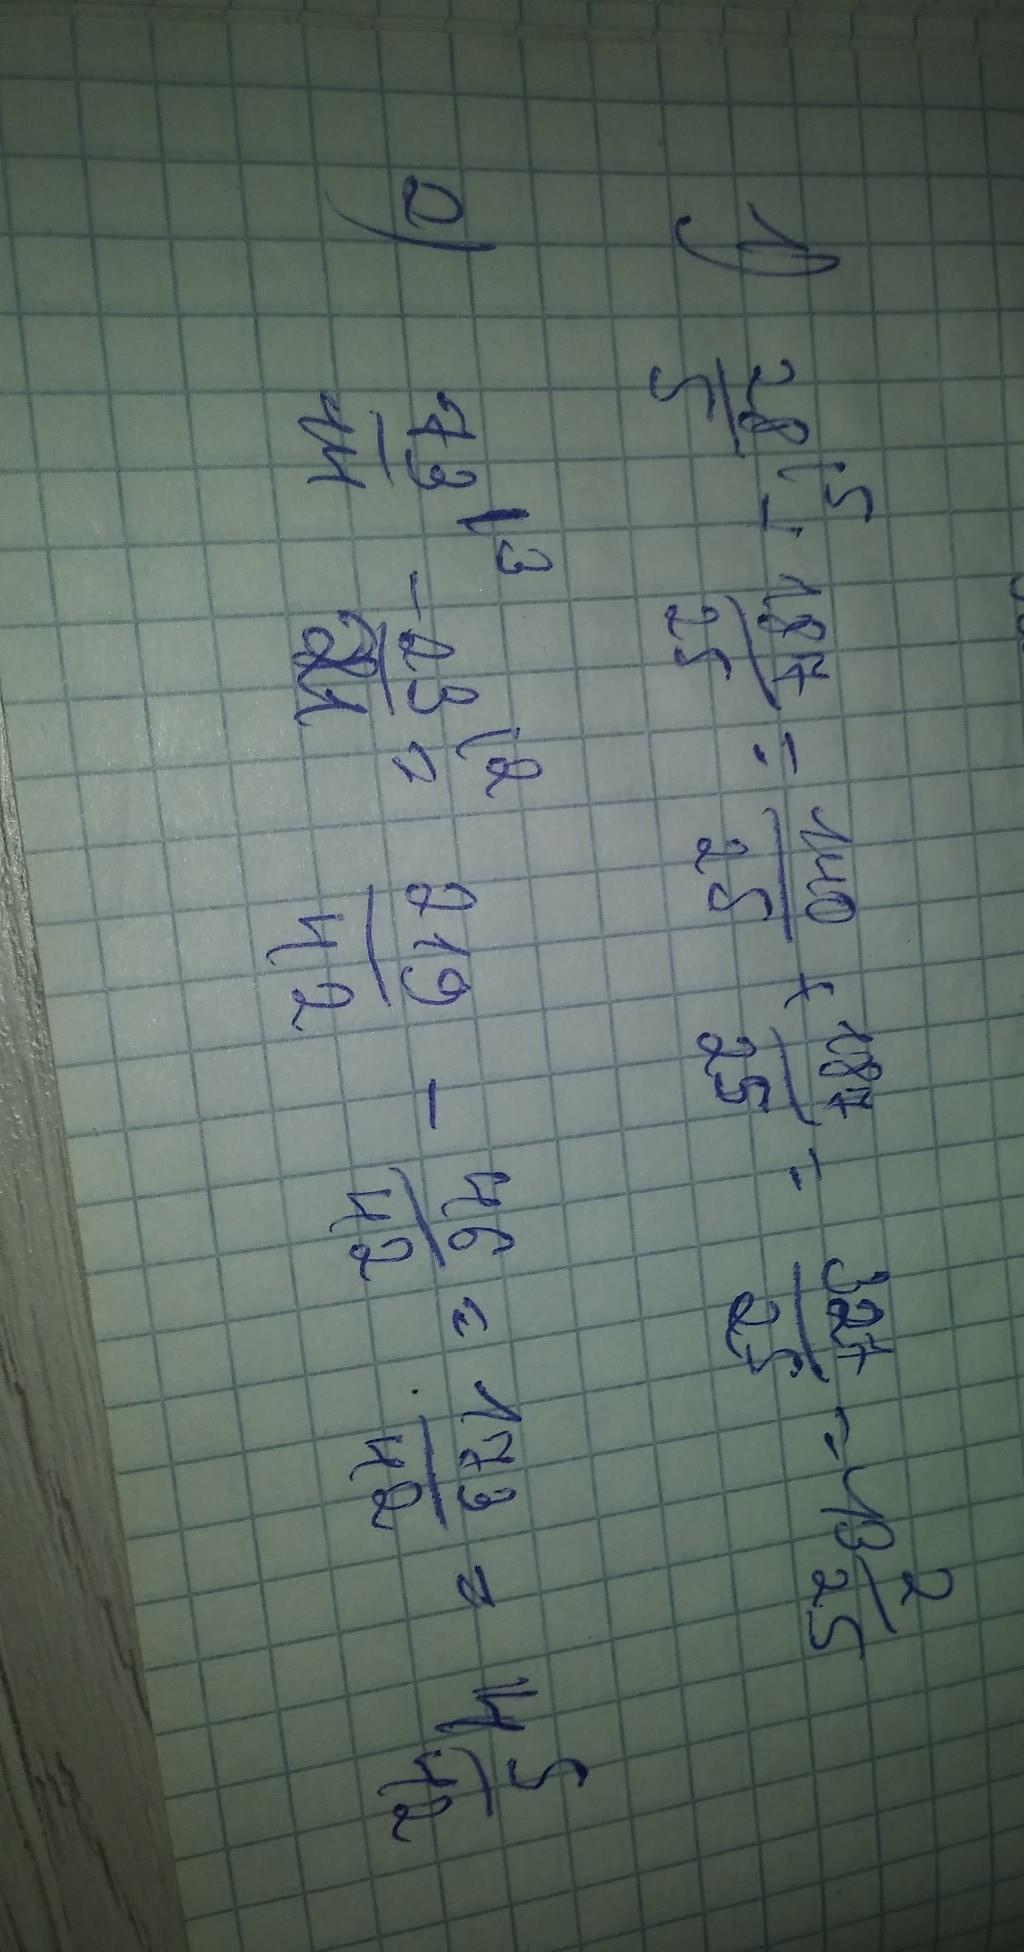 1) 28/5 \5 + 187/25 = 140/25 + 187/25 = 327/25 = 13 2/25
2) 73/14 \3 - 23/21 \2 = 219/42 - 46/42 = 173/42 = 4 5/42